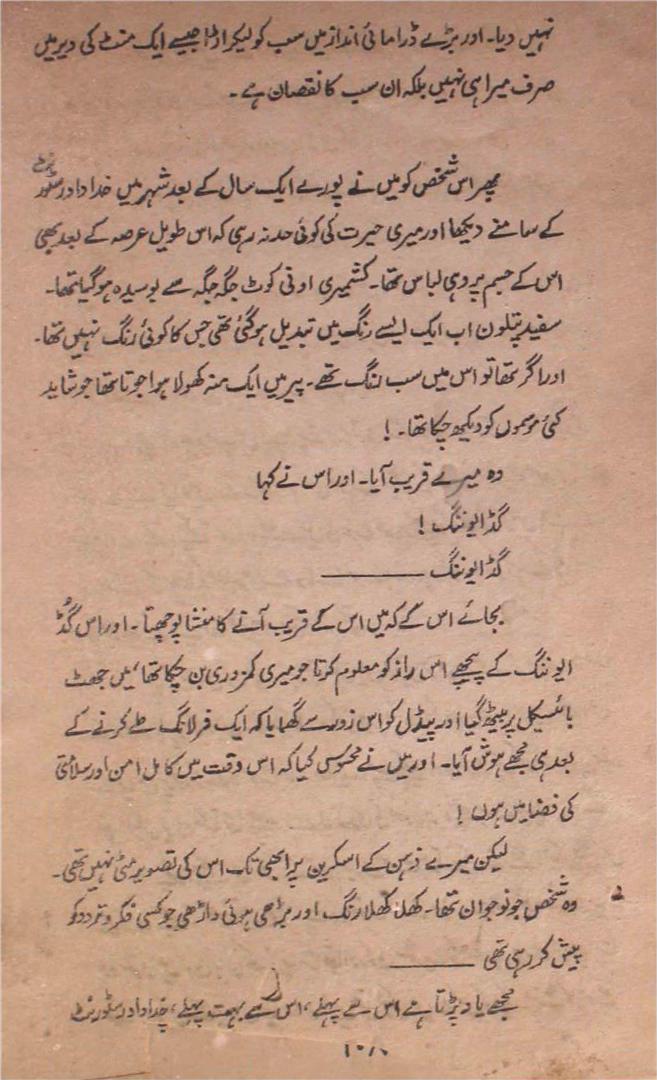 نہیں دیا۔ اور بڑے ڈرامائی انداز میں سب کو لیکر اڑا جیسے ایک منٹ کی دیر میں
صرف میرا ہی نہیں بلکہ ان سب کا نقصان ہے۔
پھر اس شخص کو میں نے پورے ایک سال کے بعد شہر میں خداداد رسٹور
نٹ
کے سامنے دیکھا اور میری حیرت کی کوئی حد نہ رہی کہ اس طویل عرصہ کے بعد بھی
اس کے جسم پر وہی لباس تھا۔ کشمیری اونی کوٹ جگہ جگہ سے بوسیدہ ہو گیا تھا۔
سفید پتلون اب ایک ایسے رنگ میں تبدیل ہو گئی تھی جس کا کوئی رنگ نہیں تھا۔
اور اگر تھا تو اس میں سب رنگ تھے۔ پیر میں ایک منہ کھولا ہوا جوتا تھا جو شاید
کئی موسموں کو دیکھ چکا تھا۔!
وہ میرے قریب آیا۔ اور اس نے کہا
گڈ ایوننگ!
گڈ ایوننگ ————
بجائے اس کے کہ میں اس کے قریب آنے کا منشا پوچھتا۔ اور اس گُڈ
ایوننگ کے پیچھے اس راز کو معلوم کرتا جو میری کمزوری بن چکا تھا، میں جھٹ
بائیسکل پر بیٹھ گیا اور پیڈل کو اس زور سے گھمایا کہ ایک فرلانگ طے کرنے کے
بعد ہی مجھے ہوش آیا۔ اور میں نے محسوس کیا کہ اس وقت میں کامل امن اور سلامتی
کی فضا میں ہوں!
لیکن میرے ذہن کے اسکرین پر ابھی تک اس کی تصویر مٹی نہیں تھی۔
وہ شخص جو نوجوان تھا۔ کھلا کھلا رنگ اور بڑھی ہوئی داڑھی جو کسی فکر و تردد کو
پیش کر رہی تھی ————
مجھے یاد پڑتا ہے اس سے پہلے، اس سے بہت پہلے، خداداد رسٹورنٹ